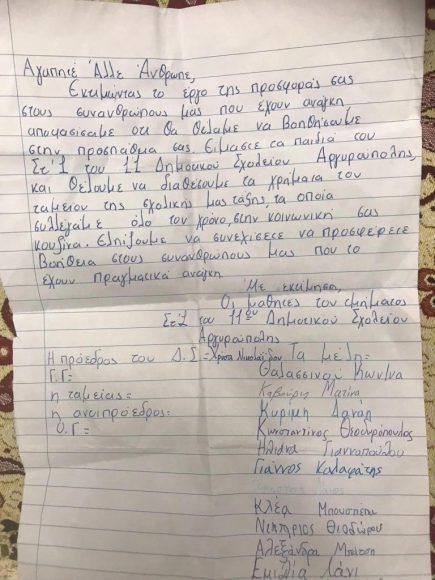 Αγαπητέ Άλλε Άνθρωπε,
Εκτιμώντας το έργο της προσφοράς σας
στους συνανθρώπους μας που έχουν ανάγκη
αποφασίσαμε οτι θα θέλαμε να βοηθήσουμε
στην προσπάθεια σας. Είμαστε τα παιδιά του
Στ'1 του 11 Δημοτικού Σχολείου Αργυρούπολης,
και θέλουμε να διαθέσουμε τα χρήματα του
ταμείου της σχολικής μας τάξης, τα οποία
συλλέγαμε όλο τον χρόνο, στην κοινωνική σας
κουζίνα. Ελπίζουμε να συνεχίσετε να προσφέρετε
βοήθεια στους συνανθρώπους μας που το
έχουν πραγματικά ανάγκη.
Με εκτίμηση,
Οι μαθητές του τμήματος
Στ'1 του 11ου Δημοτικού Σχολείου
Αργυρούπολης
Η πρόεδρος του Δ.Σ= Νικολαΐδου Τα μέλη=
Γ.Γ=
η ταμείας=
η αντιπρόεδρος=
Ο.Γ=
Ματίνα
Δανάη
Κωνσταντίνος Θεοδωρόπουλος
Ηλιάνα Γιαννοπούλου
Γιάννος Καλαφάτης
Κλέα
Νεκτάριος Θεοδώρου
Αλεξάνδρα
Εμιλία Λάνι